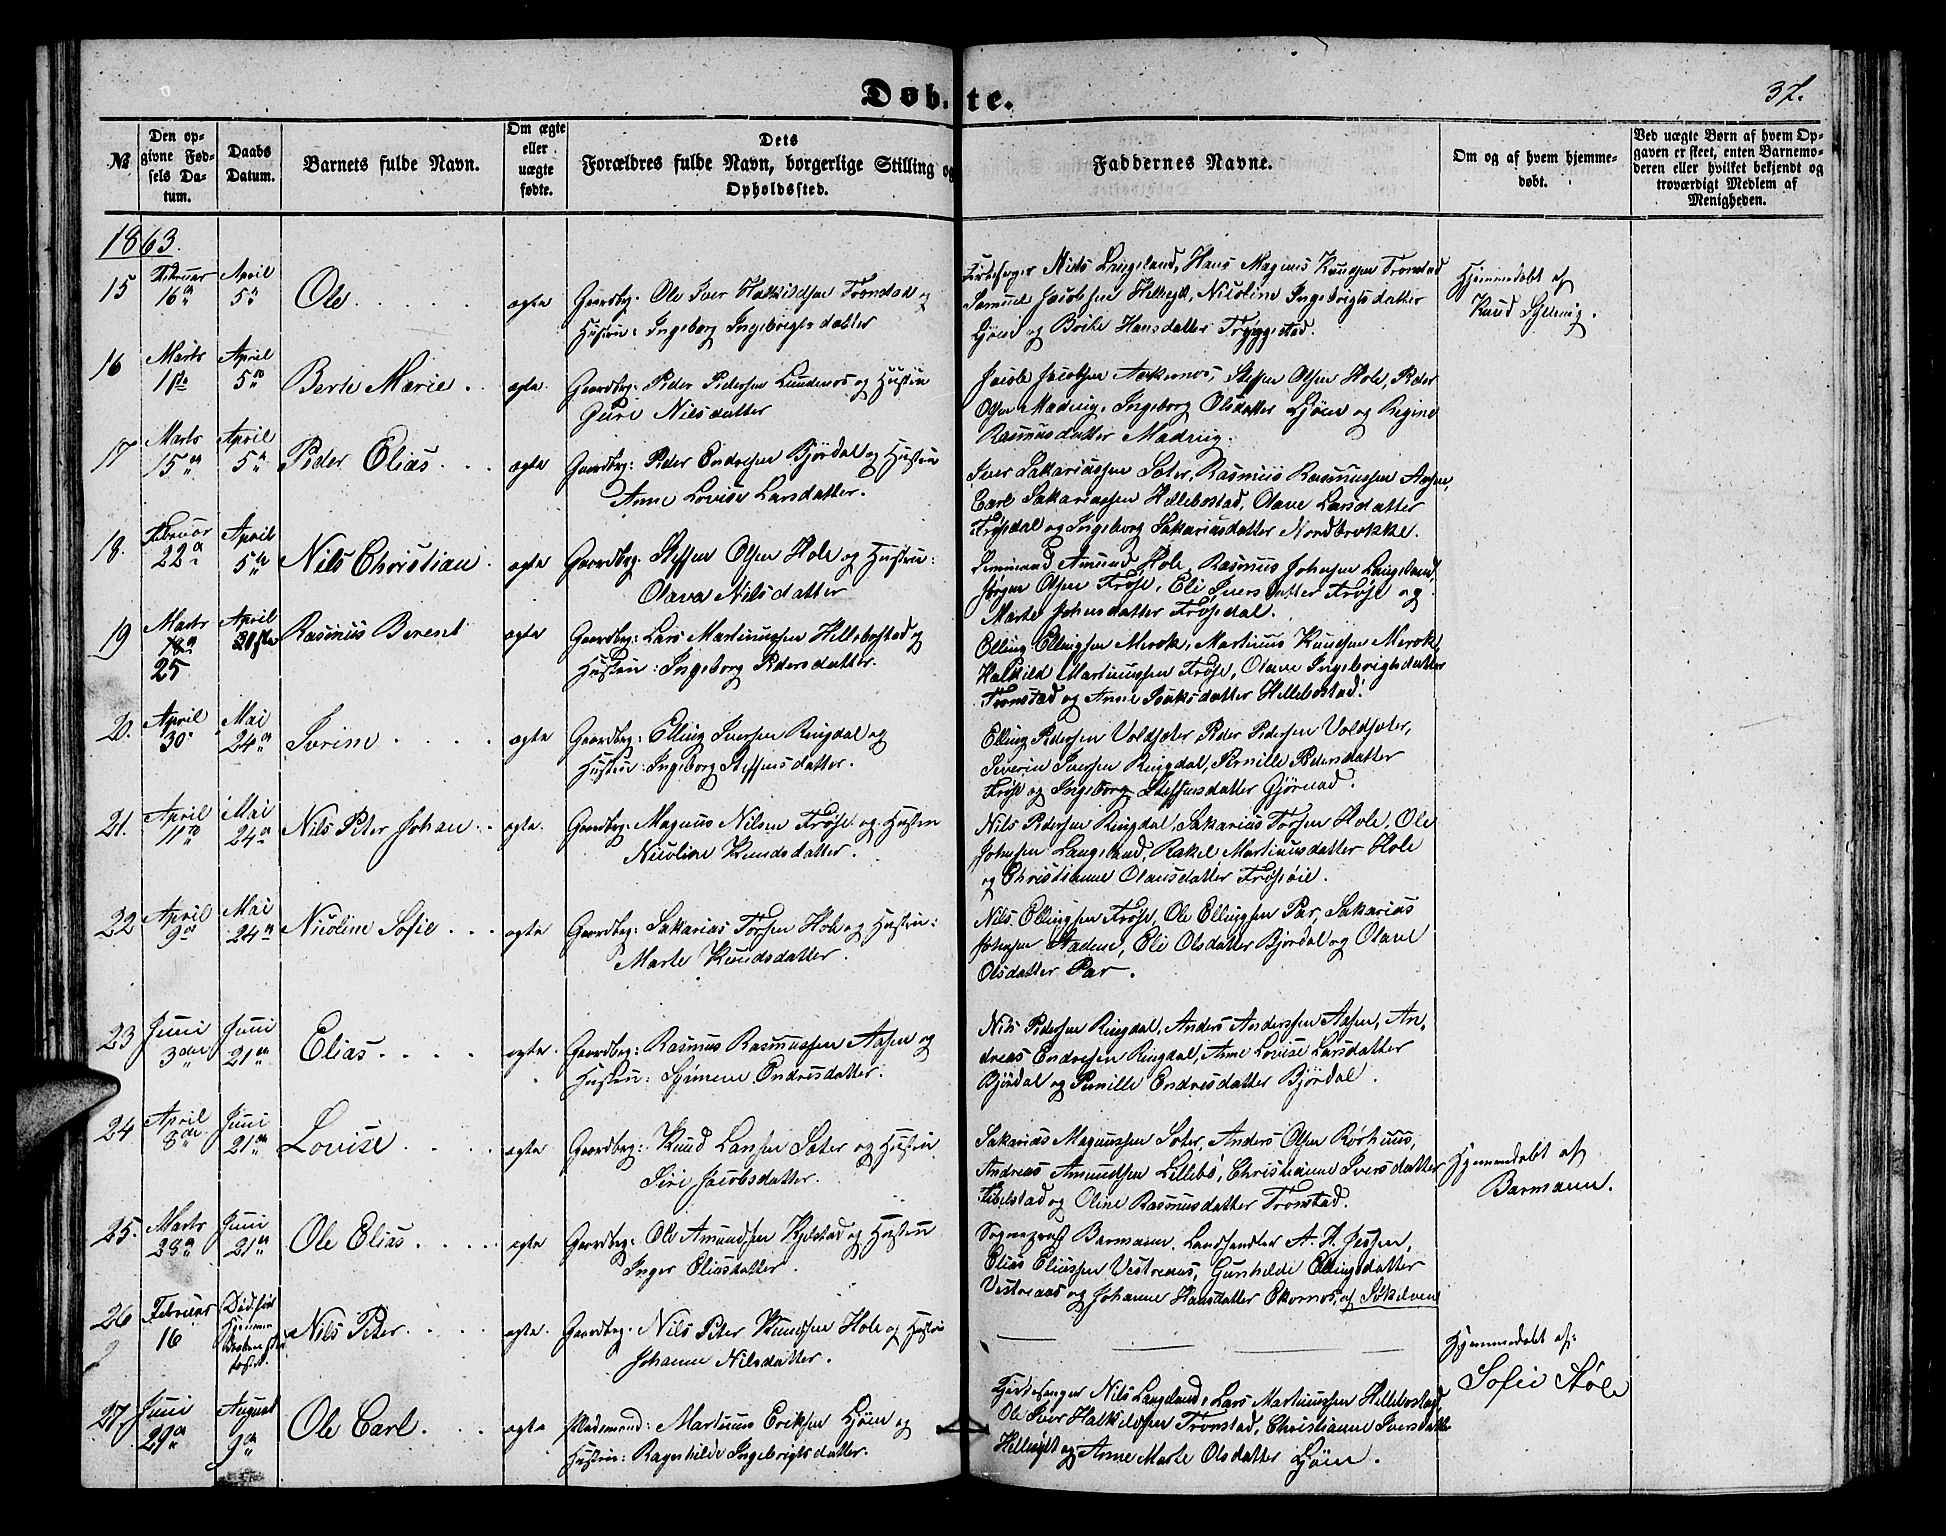 Døbte.
37.
№
Den opgivne Fødsels Datum.
Daabs Datum.
Barnets fulde Navn.
Om ægte eller uægte fødte.
Dets Forældres fulde Navn, borgerlige Stilling og Opholdssted.
Faddernes Navne.
Om og af hvem hjemmedøbt.
Ved uægte Børn af hvem Opgaven er skeet, enten Barnemoderen eller hvilket bekjendt og troværdigt Medlem af Menigheden.
1863.
15 Februar 16 April 5 Ole ægte
Gaardbr: Ole Iver Halkildsen Tronstad og
Hustru: Ingeborg Ingebrigtsdatter
Kirkesanger Nils Langeland, Hans Magnus Knudsen Tronstad
Samuel Jacobsen Hellesylt, Nicoline Ingebrigtsdatter
Ljøen og Berte Hansdatter Tryggestad.
Hjemmedøbt af
Knud Sylling.
16 Marts 1ste April 5 Berte Marie ægte
Gaardbr: Peder Pedersen Lundenes og Hustru
Guri Nilsdatter
Jacob Jacobsen Aakernes, Steffen Olsen Hole, Peder
Olsen Madvig, Ingeborg Olsdatter Ljøen og Regine
Rasmusdatter Madvig.
17 Marts 15 April 5 Peder Elias ægte
Gaardbr: Peder Endresen Bjørdal og Hustru
Anne Lovise Larsdatter.
Iver Sakariassen Sæter, Rasmus Rasmussen Aasen,
Carl Sakariassen Hellebostad, Olave Larsdatter
Frøsdal og Ingeborg Sakariasdatter Nordbrekke.
18. Februar 22 April 5 Nils Christian ægte
Gaardbr. Steffen Olsen Hole og Hustru:
Olava Nilsdatter
Seminarist Amund Hole, Rasmus Johnsen Langeland,
Jørgen Olsen Frøse, Eli Iversdatter Frøse og
Marte Johnsdatter Frøsdal.
19 Marts 18 25 April Rasmus Berent ægte
Gaardbr: Lars Martinussen Hellebostad og
Hustru: Ingeborg Pedersdatter.
Elling Ellingsen Merok, Martinus Knudsen Merok,
Halkild Martinussen Frøse, Olave Ingebrigtsdatter
Tronstad og Anne Isaksdatter Hellebostad.
20. April 30 Mai 24 Sverine ægte
Gaardbr: Elling Iversen Ringdal og
Hustru: Ingeborg Steffensdatter.
Elling Pedersen Voldsæter, Peder Pedersen Voldsæter,
Severin Iversen Ringdal, Pernille Pedersdatter
Frøse og Ingeborg Steffensdatter Gjørvad.
21. April 11 Mai 24 Nils Peter Johan ægte.
Gaardbr: Magnus Nilsen Frøse og Hustru
Nicoline Knudsdatter.
Nils Pedersen Ringdal, Sakarias Torsen Hole, Ole
Johnsen Langeland, Rakel Martinusdatter Hole
og Christianne Olausdatter Frøsøie.
22 April 9 Mai 24 Nicoline Sofie ægte
Gaardbr: Sakarias Torsen Hole og Hustru:
Marte Knudsdatter.
Nils Ellingsen Frøse, Ole Ellingsen Par, Sakarias
Johnsen Stadene, Eli Olsdatter Bjørdal og Olave
Olsdatter Par.
23 Juni 3 Juni 21 Elias ægte.
Gaardbr: Rasmus Rasmussen Aasen og
Hustru: Symene Endresdatter.
Nils Pedersen Ringdal, Anders Anderssen Aasen, An-
dreas Endresen Ringdal, Anne Lovise Larsdatter
Bjørdal og Pernille Endresdatter Bjørdal.
24 April 8de Juni 21 Lovise ægte
Gaardbr: Knud Larsen Sæter og Hustru
Siri Jacobsdatter.
Sakarias Magnussen Sæter, Anders Olsen Rørhuus,
Andreas Amundsen Lillebø, Christianne Iversdatter
Fibelstad og Oline Rasmusdatter Tronstad.
Hjemmedøbt af
Barmann.
25. Marts 28 Juni 21 Ole Elias ægte
Gaardbr: Ole Amundsen Kjelstad og Hustru
Inger Eliasdatter.
Sognepræst Barmann, Landhandler A. H. Jessen,
Elias Eliassen Vestreaas, Gunhilde Ellingsdatter
Vestreaas og Johanne Hansdatter Ekornes, af Søkelven
26 Februar 16 Nils Peter ægte.
Gaardbr: Nils Peter Knudsen Hole og Hustru
Johanne Nilsdatter.
Hjemmedøbt af:
Sofie Støle
27. Juni 29 August 9 Ole Carl. ægte
Pladsmand: Martinus Eriksen Ljøen og
Hustru: Ragnhilde Ingebrigtsdatter.
Kirkesanger Nils Langeland, Lars Martinussen Hellebostad,
Ole Iver Halkildsen Tronstad, Christianne Iversdatter
Hellesylt og Anne Marte Olsdatter Ljøen.